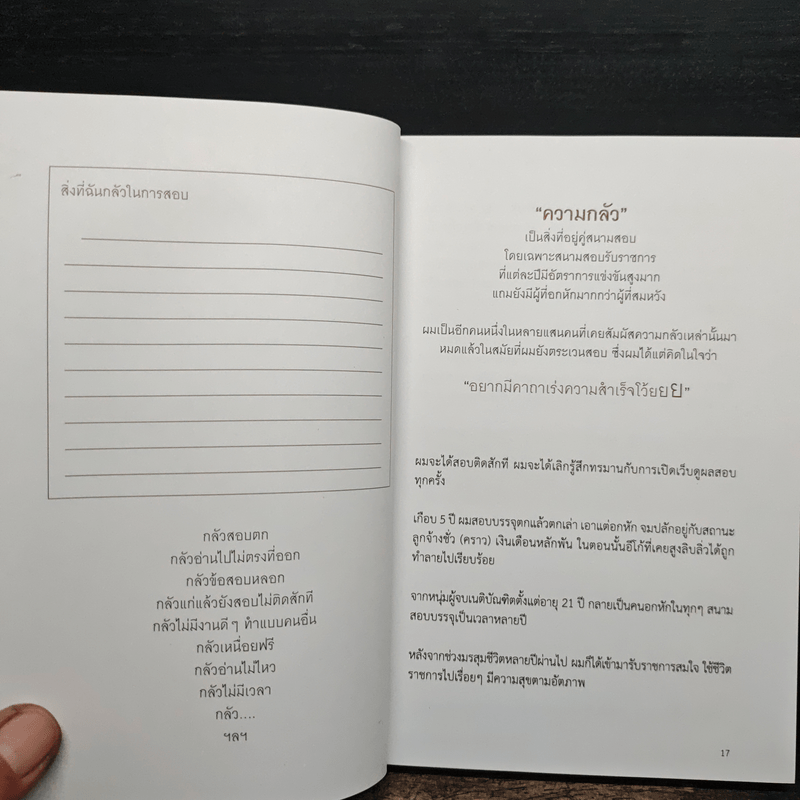 สิ่งที่ฉันกลัวในการสอบ
กลัวสอบตก
กลัวอ่านไปไม่ตรงที่ออก
กลัวข้อสอบหลอก
กลัวแก่แล้วยังสอบไม่ติดสักที
กลัวไม่มีงานดีๆ ทำแบบคนอื่น
กลัวเหนื่อยฟรี
กลัวอ่านไม่ไหว
กลัวไม่มีเวลา
กลัว....
ฯลฯ
“ความกลัว”
เป็นสิ่งที่อยู่คู่สนามสอบ
โดยเฉพาะสนามสอบรับราชการ
ที่แต่ละปีมีอัตราการแข่งขันสูงมาก
แถมยังมีผู้ที่อกหักมากกว่าผู้ที่สมหวัง
ผมเป็นอีกคนหนึ่งในหลายแสนคนที่เคยสัมผัสความกลัวเหล่านั้นมา
หมดแล้วในสมัยที่ผมยังตระเวนสอบ ซึ่งผมได้แต่คิดในใจว่า
“อยากมีคาถาเร่งความสำเร็จโว้ยยย”
ผมจะได้สอบติดสักที ผมจะได้เลิกรู้สึกทรมานกับการเปิดเว็บดูผลสอบ
ทุกครั้ง
เกือบ 5 ปี ผมสอบบรรจุตกแล้วตกเล่า เอาแต่อกหัก จมปลักอยู่กับสถานะ
ลูกจ้างชั่ว (คราว) เงินเดือนหลักพัน ในตอนนั้นอีโก้ที่เคยสูงลิบลิ่วได้ถูก
ทำลายไปเรียบร้อย
จากหนุ่มผู้จบเนติบัณฑิตตั้งแต่อายุ 21 ปี กลายเป็นคนอกหักในทุกๆ สนาม
สอบบรรจุเป็นเวลาหลายปี
หลังจากช่วงมรสุมชีวิตหลายปีผ่านไป ผมก็ได้เข้ามารับราชการสมใจ ใช้ชีวิต
ราชการไปเรื่อยๆ มีความสุขตามอัตภาพ
17